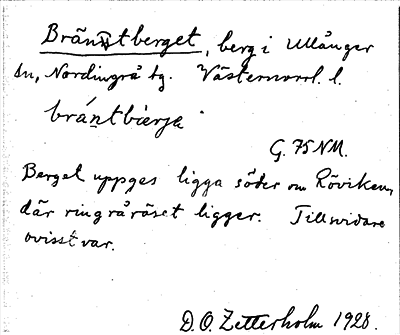 Bränntberget, berg i Ullånger
sn, Nordingrå tg. Västernorrl. l.
brántbi̇̀erje
G. 75 NM.
Berget uppges ligga söder om Röviken,
där ringråröset ligger. Tillsvidare
ovisst var.
D. O. Zetterholm 1928.